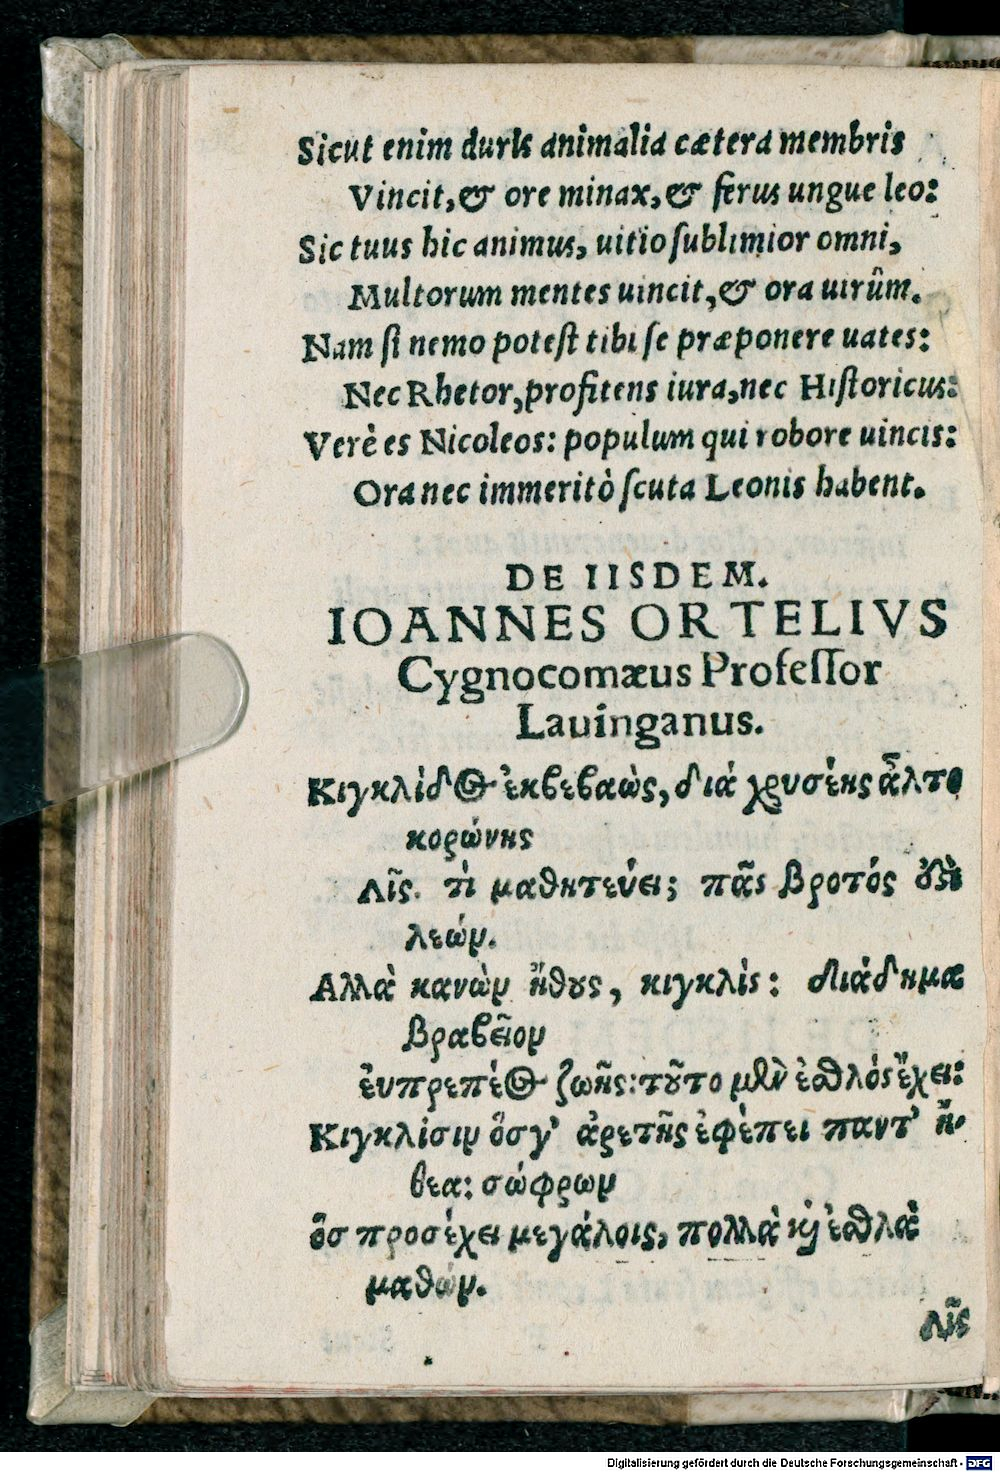 Sicut enim duris animalia cætera membris
Vincit, & ore minax, & ferus ungue leo:
Sic tuus hic animus, uitio sublimior omni,
Multorum mentes uincit, & ora uirûm.
Nam si nemo potest tibi se præponere uates:
Nec Rhetor, profitens iura, nec Historicus:
Verè es Nicoleos: populum qui robore uincis:
Ora nec immeritò scuta Leonis habent.
DE IISDEM.
IOANNES ORTELIVS
Cygnocomæus Professor
Lauinganus.
Κιγκλίδος ἐκβεβαὼς, διά χρυσέης ἆλτο
κορώνης
Λῖς. τί μαθητεύει; πᾶς βροτός ὅδε
λεών.
Αλλὰ κανὼν ἤθους, κιγκλὶς: διάδημα
βραβεῖον
ἐυπρεπέος ζωῆς: τοῦτο μὲν ἐσθλός ἔχει:
Κιγκλίσιν ὅσγ' ἀρετῆς ἐφέπει παντ' ἤ-
θεα: σώφρων
ὅσ προσέχει μεγάλοις, πολλὰ καὶ ἐσθλὰ
μαθών.
Λῖς
Digitalisierung gefördert durch die Deutsche Forschungsgemeinschaft - DFG